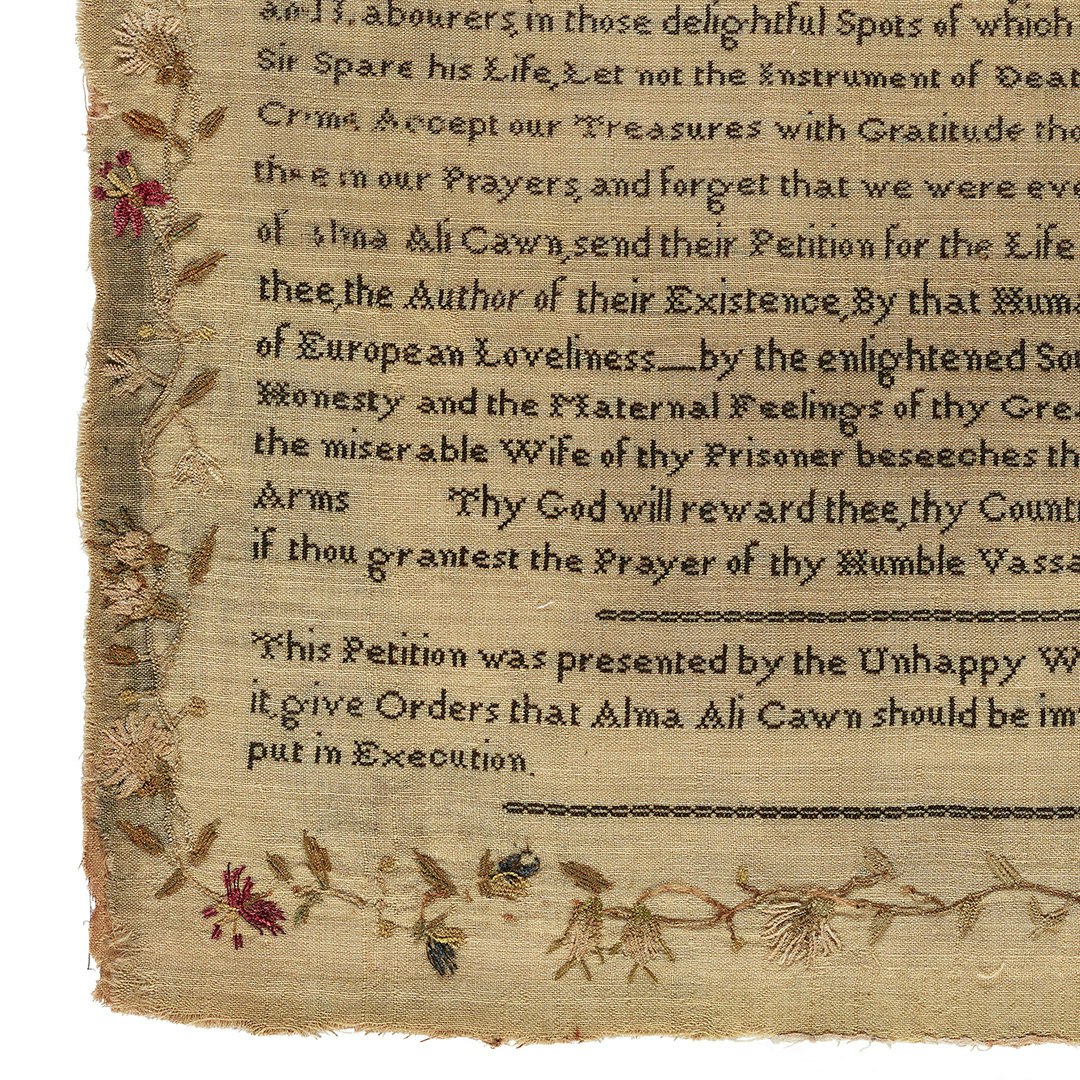 abourers, in those delightful Spots of which
Sir Spare his Life, Let not the Instrument of Deat
Crime Accept our Treasures with Gratitude tho
thee in our Prayers, and forget that we were eve
of Alma Ali Cawn, send their Petition for the Life
thee, the Author of their Existence, By that Huma
of European Loveliness__by the enlightened Sou
Honesty and the Maternal Feelings of thy Grea
the miserable Wife of thy Prisoner beseeches th
Arms Thy God will reward thee, thy Count
if thou grantest the Prayer of thy Humble Vassa
This Petition was presented by the Unhappy W
it, give Orders that Alma Ali Cawn should be im
put in Execution.